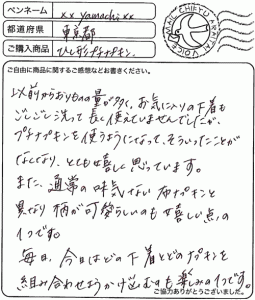 ペンネーム xx yamachi xx
都道府県 東京都
ご購入商品 ひし形プチナプキン。
MAIL CHIEYU ARATAI VOICE
ご自由に商品に関するご感想などお書きください。
以前からおりものの量が多く、お気に入りの下着も
ごしごし洗って長く使えていませんでしたが、
プチナプキンを使うようになって、そういったことが
なくなり、とても嬉しく思っています。
また、通常の味気ない布ナプキンと
異なり柄が可愛らしいのも嬉しい点の
1つです。
毎日、今日はどの下着とどのナプキンを
組み合わせようか考え込むのも楽しみの1つです。
ご協力ありがとうございました。